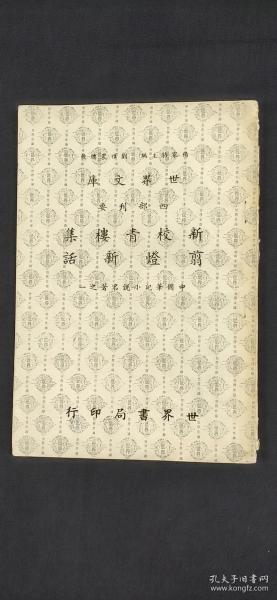 楊家駱主編 劉雅農總校
世界文庫
四部刊要
新校青樓集
翦燈新話
中國筆記小說名著之一
世界書局印行
孔夫子旧书网